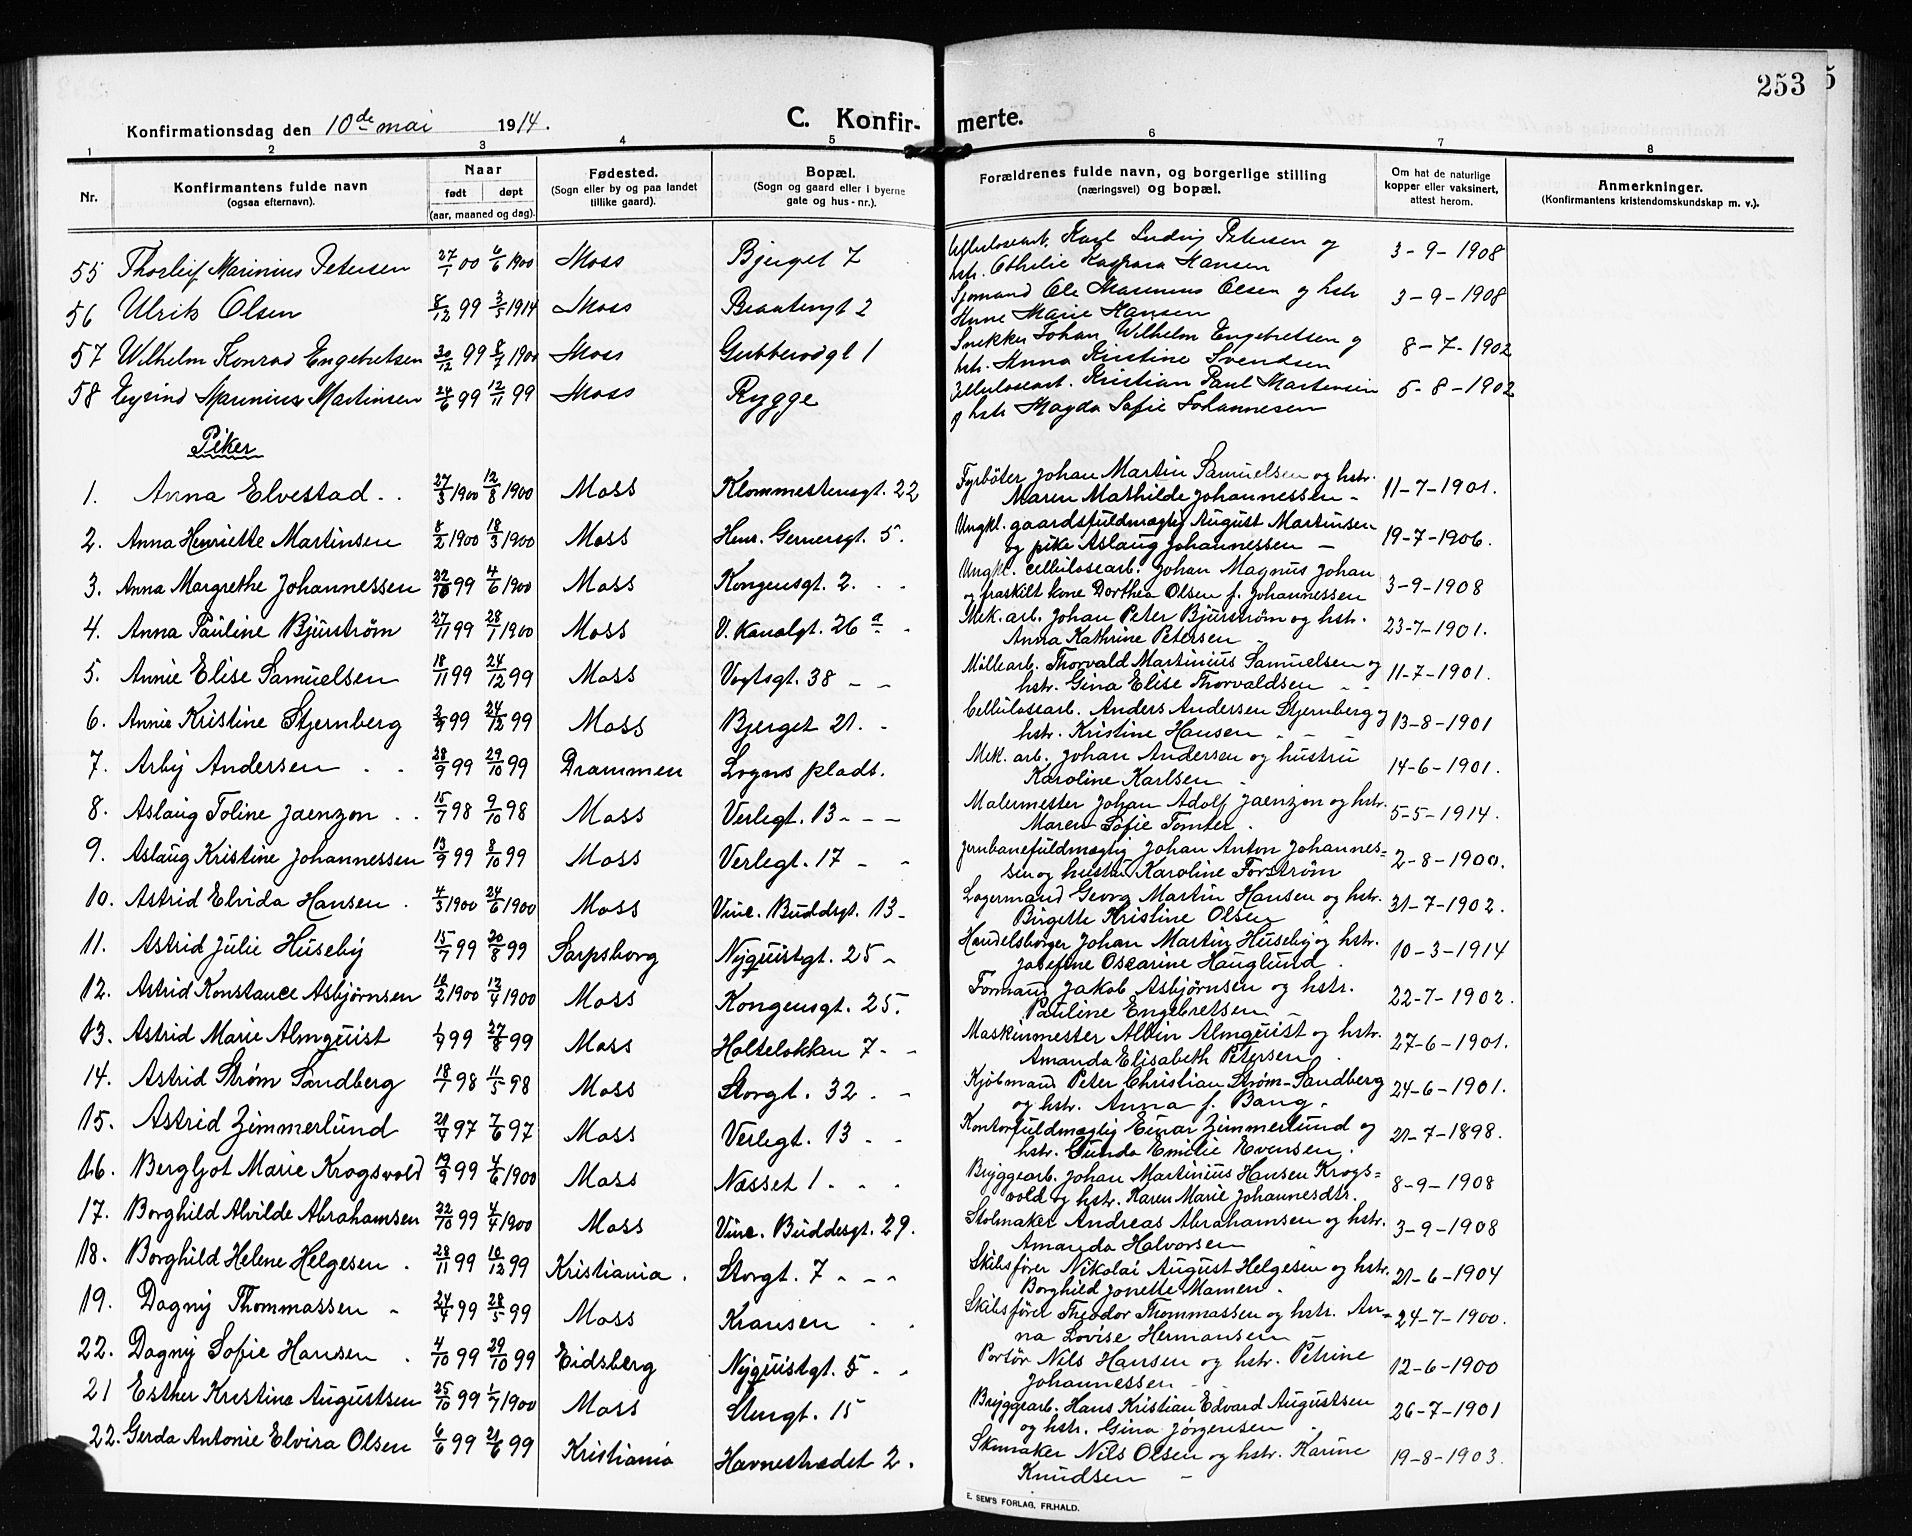 253
Konfirmationsdag den 10de mai 1914.
C. Konfir- merte.
1 2 3 4 5 6 7 8
Nr.
Konfirmantens fulde navn
(ogsaa efternavn).
Naar
født døpt
(aar, maaned og dag).
Fødested.
(Sogn eller by og paa landet
tillike gaard).
Bopæl.
(Sogn og gaard eller i byerne
gate og hus-nr.).
Forældrenes fulde navn, og borgerlige stilling
(næringsvei) og bopæl.
Om hat de naturlige
kopper eller vaksinert,
attest herom.
Anmerkninger.
(Konfirmantens kristendomskundskap m. v.).
55 Thorleif Marinius Petersen 27/1 00 6/6 1900 Moss Bjerget 7 Cellulosearb. Karl Ludvig Petersen og
hstr. Othelie Kaspara Hansen 3-9-1908
56 Ulrik Olsen 8/12 99 3/5 1914 Moss Braatengt 2 Sjømand Ole Marenius Olsen og hstr
Anne Marie Hansen 3-9-1908
57 Wilhelm Konrad Engebretsen 30/12 99 8/7 1900 Moss Gubberodgt 1 Snekker Johan Wilhelm Engebretsen og
hstr. Anna Kristine Svendsen 8-7-1902
58 Eyvind Marinius Martinsen 24/6 99 12/11 99 Moss Rygge Cellulosearb. Kristian Paul Martensen
og hstr Magda Sofie Johannesen 5-8-1902
Piker
1. Anna Elvestad 27/3 1900 12/8 1900 Moss Klommestensgt. 22 Fyrbøter Johan Martin Samuelsen og hstr.
Maren Mathilde Johannessen 11-7-1901.
2. Anna Henriette Martinsen 8/2 1900 18/3 1900 Moss Henr. Gernersgt. 5. Ungkl. gaardsfuldmægtig August Martinsen
og pike Aslaug Johannessen 19-7-1906.
3. Anna Margrethe Johannessen 22/10 99 4/6 1900 Moss Kongensgt. 2. Ungkl. cellulosearb. Johan Magnus Johan
og fraskilt kone Dorthea Olsen f. Johannessen 3-9-1908
4. Anna Pauline Bjurstrøm 27/11 99 28/1 1900 Moss V. Kanalgt. 26 a Mek. arb. Johan Peter Bjurstrøm og hstr.
Anna Kathrine Petersen 23-7-1901.
5. Annie Elise Samuelsen 18/11 99 24/12 99 Moss Vogtsgt. 38 Møllearb. Thorvald Martinius Samuelsen og
hstr. Gina Elise Thorvaldsen 11-7-1901.
6. Annie Kristine Stjernberg 2/9 99 24/12 99 Moss Bjerget 21. Cellulosearb. Anders Andersen Stjernberg og
hstr. Kristine Hansen 13-8-1901
7. Arby Andersen 28/9 99 29/10 99 Drammen Logns plads. Mek. arb. Johan Andersen og hustru
Karoline Karlsen 14-6-1901.
8. Aslaug Toline Jaenzon 15/7 98 9/10 98 Moss Verlegt. 13 Malermester Johan Adolf Jaenzon og hstr.
Maren Sofie Tomter. 5-5-1914.
9. Aslaug Kristine Johannessen 13/9 99 8/10 99 Moss Verlegt. 17 Jernbanefuldmægtig Johan Anton Johannes=
sen og hustru Karoline Forstrøm 2-8-1900.
10. Astrid Elvida Hansen 4/3 1900 24/6 1900 Moss Vinc. Buddsgt. 13 Lagermand Georg Martin Hansen og hstr.
Birgitte Kristine Olsen 31-7-1902.
11. Astrid Julie Huseby 15/7 99 20/8 99 Sarpsborg Nyquistgt. 25 Handelsborger Johan Martin Huseby og hstr.
Josefine Oscarine Hauglund 10-3-1914
12. Astrid Konstance Asbjørnsen 10/2 1900 12/4 1900 Moss Kongensgt. 25. Formand Jakob Asbjørnsen og hstr.
Pauline Engebretsen 22-7-1902.
13. Astrid Marie Almquist 1/7 99 27/8 99 Moss Holteløkkan 7 Maskinmester Albin Almquist og hstr.
Amanda Elisabeth Petersen 27-6-1901.
14. Astrid Strøm Sandberg 18/1 98 11/5 98 Moss Storgt. 32 Kjøbmand Peter Christian Strøm-Sandberg
og hstr. Anna f. Bang. 24-6-1901.
15. Astrid Zimmerlund 21/4 97 7/6 97 Moss Verlegt. 13 Kontorfuldmægtig Einar Zimmerlund og
hstr. Gunda Emilie Evensen. 21-7-1898.
16. Bergljot Marie Krogsvold 19/9 99 4/6 1900 Moss Næsset 1 Bryggearb. Johan Martinius Hansen Krogs=
vold og hstr. Karen Marie Johannesdtr. 8-9-1908
17. Borghild Alvilde Abrahamsen 22/10 99 4/4 1900 Moss Vinc. Buddesgt. 29. Stolmaker Andreas Abrahamsen og hstr.
Amanda Halvorsen 3-9-1908
18. Borghild Helene Helgesen 28/11 99 10/12 99 Kristiania. Storgt. 7 Skibsfører Nikolai August Helgesen og hstr.
Borghild Jonette Mamen. 21-6-1904
19. Dagny Thommassen 24/4 99 28/5 99 Moss Kransen Skibsfører Theodor Thommassen og hstr. An=
na Lovise Hermansen 24-7-1900.
22. Dagny Sofie Hansen 4/10 99 29/10 99 Eidsberg Nyquistgt. 5 Portør Nils Hansen og hstr. Petrine
Johannessen 12-6-1900
21 Esther Kristine Augustsen 25/10 99 1/7 1900 Moss Stengt. 15 Bryggearb. Hans Kristian Edvard Augustsen
og hstr. Gina Jørgensen 26-7-1901
22. Gerda Antonie Elvira Olsen 6/6 99 21/6 99 Kristiania Havnestrædet 2. Skomaker Nils Olsen og hstr. Karine
Knudsen 19-8-1903.
E. SEM'S FORLAG, FR.HALD.